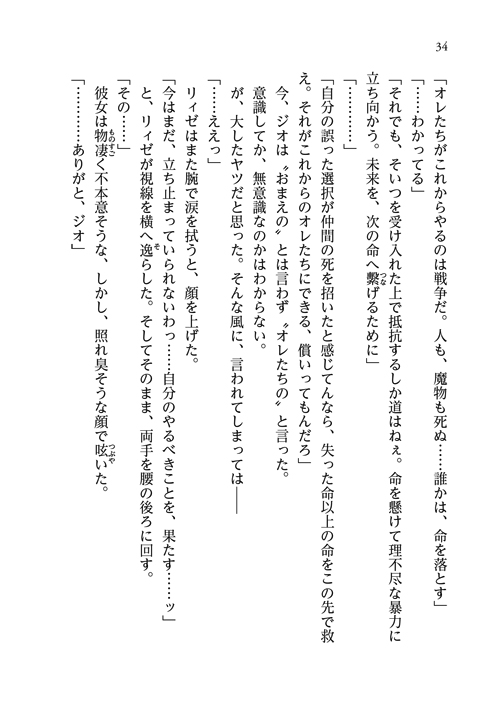 34
「オレたちがこれからやるのは戦争だ。人も、魔物も死ぬ……誰かは、命を落とす」
「……わかってる」
「それでも、そいつを受け入れた上で抵抗するしか道はねぇ。命を懸けて理不尽な暴力に
立ち向かう。未来を、次の命へ繋げるために」
「…………」
「自分の誤った選択が仲間の死を招いたと感じてんなら、失った命以上の命をこの先で救
え。それがこれからのオレたちにできる、償いってもんだろ」
　今、ジオは〝おまえの〟とは言わず〝オレたちの〟と言った。
　意識してか、無意識なのかはわからない。
　が、大したヤツだと思った。そんな風に、言われてしまっては――
「……ええっ」
　リィゼはまた腕で涙を拭うと、顔を上げた。
「今はまだ、立ち止まっていられないわっ……自分のやるべきことを、果たす……ッ」
　と、リィゼが視線を横へ逸らした。そしてそのまま、両手を腰の後ろに回す。
「その……」
　彼女は物凄く不本意そうな、しかし、照れ臭そうな顔で呟いた。
「…………ありがと、ジオ」